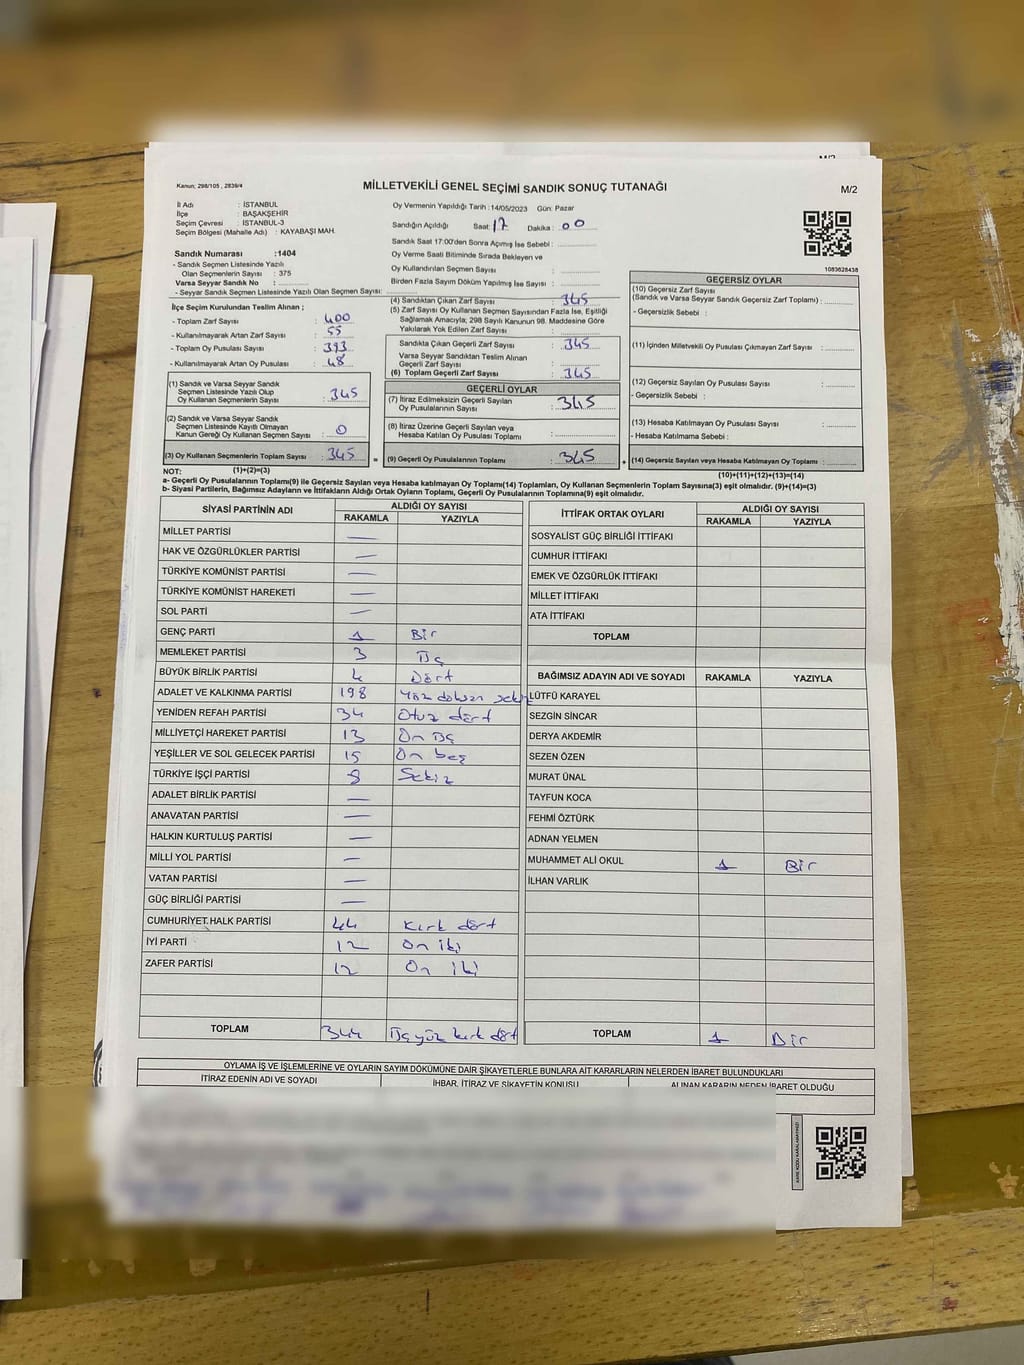 M/2
Kanun; 298/105 , 2839/4
MİLLETVEKİLİ GENEL SEÇİMİ SANDIK SONUÇ TUTANAĞI
M/2
İl Adı : İSTANBUL
İlçe : BAŞAKŞEHİR
Seçim Çevresi : İSTANBUL-3
Seçim Bölgesi (Mahalle Adı) : KAYABAŞI MAH.
Oy Vermenin Yapıldığı Tarih :14/05/2023 Gün: Pazar
Sandığın Açıldığı Saat: 17 Dakika : 00
Sandık Saat 17:00'den Sonra Açmış İse Sebebi :
Oy Verme Saati Bitiminde Sırada Bekleyen ve
Oy Kullandırılan Seçmen Sayısı :
Birden Fazla Sayım Döküm Yapılmış İse Sayısı :
1083628438
Sandık Numarası :1404
- Sandık Seçmen Listesinde Yazılı
Olan Seçmenlerin Sayısı : 375
Varsa Seyyar Sandık No :
- Seyyar Sandık Seçmen Listesinde Yazılı Olan Seçmen Sayısı:
İlçe Seçim Kurulundan Teslim Alınan ;
- Toplam Zarf Sayısı : 400
- Kullanılmayarak Artan Zarf Sayısı : 55
- Toplam Oy Pusulası Sayısı : 393
- Kullanılmayarak Artan Oy Pusulası : 48
(1) Sandık ve Varsa Seyyar Sandık
Seçmen Listesinde Yazılı Olup
Oy Kullanan Seçmenlerin Sayısı : 345
(2) Sandık ve Varsa Seyyar Sandık
Seçmen Listesinde Kayıtlı Olmayan
Kanun Gereği Oy Kullanan Seçmen Sayısı : 0
(3) Oy Kullanan Seçmenlerin Toplam Sayısı : 345
(4) Sandıktan Çıkan Zarf Sayısı : 345
(5) Zarf Sayısı Oy Kullanan Seçmen Sayısından Fazla İse, Eşitliği
Sağlamak Amacıyla; 298 Sayılı Kanunun 98. Maddesine Göre
Yakılarak Yok Edilen Zarf Sayısı :
Sandıkta Çıkan Geçerli Zarf Sayısı : 345
Varsa Seyyar Sandıktan Teslim Alınan
Geçerli Zarf Sayısı :
(6) Toplam Geçerli Zarf Sayısı : 345
GEÇERLİ OYLAR
(7) İtiraz Edilmeksizin Geçerli Sayılan
Oy Pusulalarının Sayısı : 345
(8) İtiraz Üzerine Geçerli Sayılan veya
Hesaba Katılan Oy Pusulası Toplamı :
= (9) Geçerli Oy Pusulalarının Toplamı : 345
GEÇERSİZ OYLAR
(10) Geçersiz Zarf Sayısı
(Sandık ve Varsa Seyyar Sandık Geçersiz Zarf Toplamı) :
- Geçersizlik Sebebi :
(11) İçinden Milletvekili Oy Pusulası Çıkmayan Zarf Sayısı :
(12) Geçersiz Sayılan Oy Pusulası Sayısı :
- Geçersizlik Sebebi :
(13) Hesaba Katılmayan Oy Pusulası Sayısı :
- Hesaba Katılmama Sebebi :
+ (14) Geçersiz Sayılan veya Hesaba Katılmayan Oy Toplamı :
NOT: (1)+(2)=(3)
(10)+(11)+(12)+(13)=(14)
a- Geçerli Oy Pusulalarının Toplamı(9) ile Geçersiz Sayılan veya Hesaba Katılmayan Oy Toplamı(14) Toplamları, Oy Kullanan Seçmenlerin Toplam Sayısına(3) eşit olmalıdır. (9)+(14)=(3)
b- Siyasi Partilerin, Bağımsız Adayların ve İttifakların Aldığı Ortak Oyların Toplamı, Geçerli Oy Pusulalarının Toplamına(9) eşit olmalıdır.
SİYASİ PARTİNİN ADI ALDIĞI OY SAYISI
RAKAMLA YAZIYLA
MİLLET PARTİSİ —
HAK VE ÖZGÜRLÜKLER PARTİSİ —
TÜRKİYE KOMÜNİST PARTİSİ —
TÜRKİYE KOMÜNİST HAREKETİ —
SOL PARTİ —
GENÇ PARTİ 1 Bir
MEMLEKET PARTİSİ 3 Üç
BÜYÜK BİRLİK PARTİSİ 4 Dört
ADALET VE KALKINMA PARTİSİ 198 Yüz doksan sekiz
YENİDEN REFAH PARTİSİ 34 Otuz dört
MİLLİYETÇİ HAREKET PARTİSİ 13 On Üç
YEŞİLLER VE SOL GELECEK PARTİSİ 15 On beş
TÜRKİYE İŞÇİ PARTİSİ 8 Sekiz
ADALET BİRLİK PARTİSİ —
ANAVATAN PARTİSİ —
HALKIN KURTULUŞ PARTİSİ —
MİLLİ YOL PARTİSİ —
VATAN PARTİSİ —
GÜÇ BİRLİĞİ PARTİSİ —
CUMHURİYET HALK PARTİSİ 44 Kırk dört
İYİ PARTİ 12 On iki
ZAFER PARTİSİ 12 On iki
TOPLAM 344 Üçyüz kırk dört
İTTİFAK ORTAK OYLARI ALDIĞI OY SAYISI
RAKAMLA YAZIYLA
SOSYALİST GÜÇ BİRLİĞİ İTTİFAKI
CUMHUR İTTİFAKI
EMEK VE ÖZGÜRLÜK İTTİFAKI
MİLLET İTTİFAKI
ATA İTTİFAKI
TOPLAM
BAĞIMSIZ ADAYIN ADI VE SOYADI RAKAMLA YAZIYLA
LÜTFÜ KARAYEL
SEZGİN SİNCAR
DERYA AKDEMİR
SEZEN ÖZEN
MURAT ÜNAL
TAYFUN KOCA
FEHMİ ÖZTÜRK
ADNAN YELMEN
MUHAMMET ALİ OKUL 1 Bir
İLHAN VARLIK
TOPLAM 1 Bir
OYLAMA İŞ VE İŞLEMLERİNE VE OYLARIN SAYIM DÖKÜMÜNE DAİR ŞİKAYETLERLE BUNLARA AİT KARARLARIN NELERDEN İBARET BULUNDUKLARI
İTİRAZ EDENİN ADI VE SOYADI İHBAR, İTİRAZ VE ŞİKAYETİN KONUSU ALINAN KARARIN NEDEN İBARET OLDUĞU